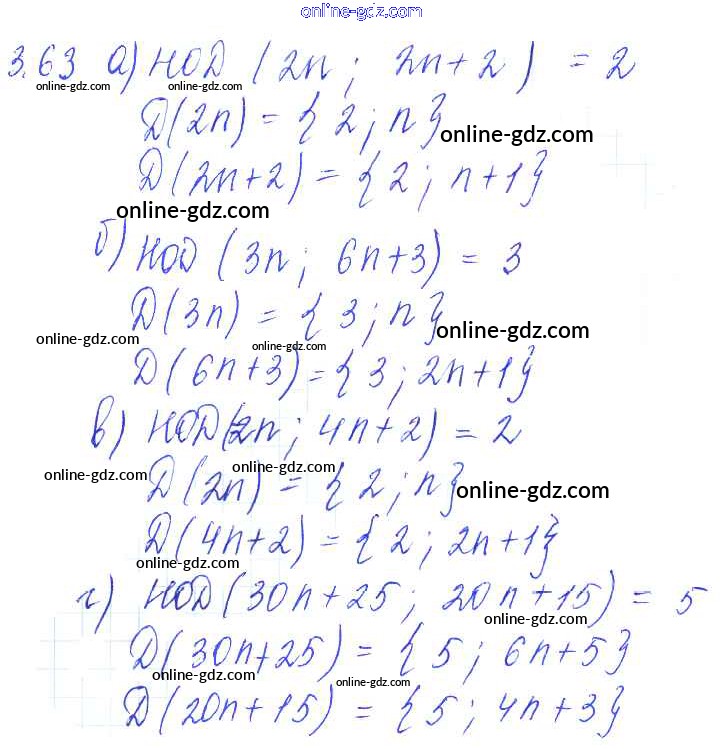 online-gdz.com
3.63 а) НОД (2n ; 2n+2) = 2
online-gdz.com online-gdz.com online-gdz.com
D(2n) = {2 ; n}
online-gdz.com
D(2n+2) = {2 ; n+1}
online-gdz.com
б) НОД (3n ; 6n+3) = 3
D(3n) = {3 ; n}
online-gdz.com online-gdz.com online-gdz.com
D(6n+3) = {3 ; 2n+1}
в) НОД(2n ; 4n+2) = 2
online-gdz.com online-gdz.com
D(2n) = {2 ; n}
online-gdz.com
D(4n+2) = {2 ; 2n+1}
online-gdz.com
г) НОД(30n+25 ; 20n+15) = 5
online-gdz.com
D(30n+25) = {5 ; 6n+5}
online-gdz.com online-gdz.com
D(20n+15) = {5 ; 4n+3}